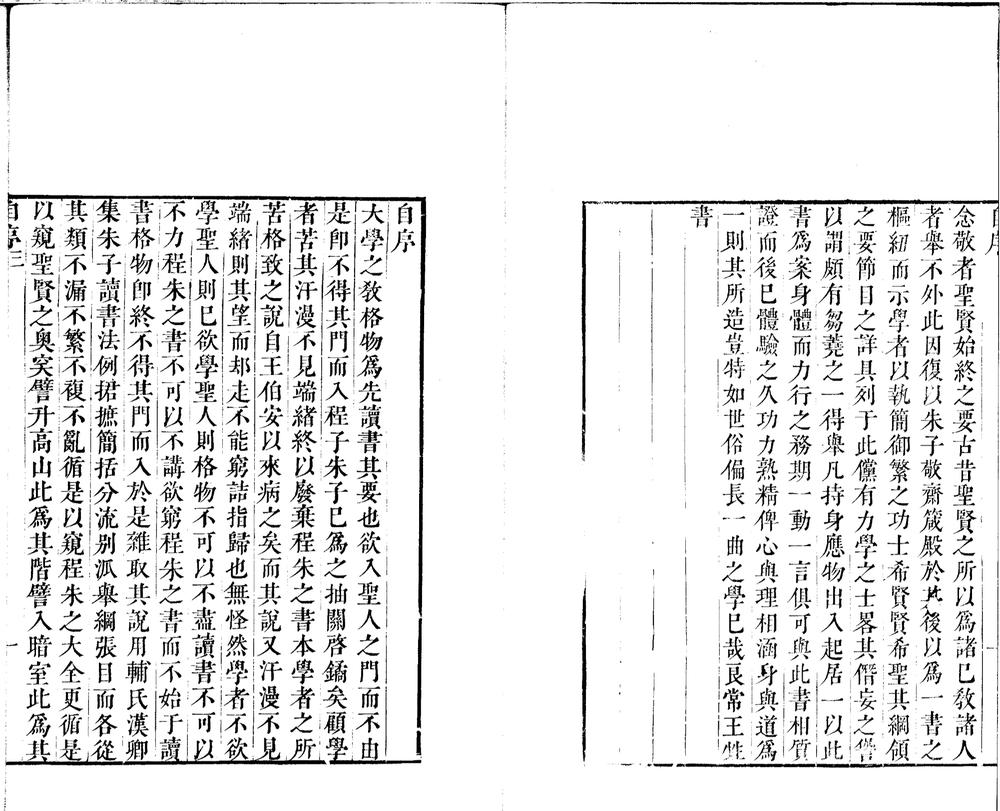 念敬者聖賢始終之要古昔聖賢之所以爲諸已敎諸人
者舉不外此因復以朱子敬齋箴殿於其後以爲一書之
樞紐而示學者以執簡御繁之功士希賢賢希聖其綱領
之要節目之詳具列于此儻有力學之士畧其僭妄之咎
以謂頗有芻蕘之一得舉凡持身應物出入起居一以此
書爲案身體而力行之務期一動一言俱可與此書相質
證而後已體驗之久功力熟精俾心與理相涵身與道爲
一則其所造豈特如世俗偏長一曲之學已哉艮常王甡
書
自序
大學之敎格物爲先讀書其要也欲入聖人之門而不由
是卽不得其門而入程子朱子已爲之抽關啓鐍矣顧學
者苦其汗漫不見端緒終以廢棄程朱之書本學者之所
苦格致之說自王伯安以來病之矣而其說又汗漫不見
端緒則其望而却走不能窮詰指歸也無怪然學者不欲
學聖人則已欲學聖人則格物不可以不盡讀書不可以
不力程朱之書不可以不講欲窮程朱之書而不始于讀
書格物卽終不得其門而入於是雜取其說用輔氏漢卿
集朱子讀書法例捃摭簡括分流别派舉綱張目而各從
其類不漏不繁不複不亂循是以窺程朱之大全更循是
以窺聖賢之奥突譬升高山此爲其階譬入暗室此爲其
自序三
一